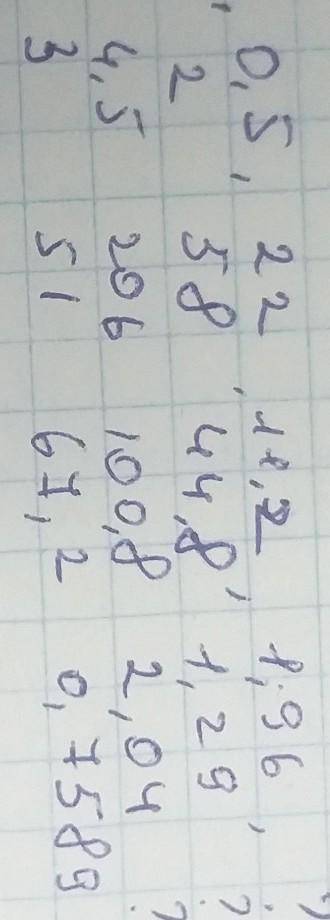 0,5, 22, 11,2, 1,96, ?
2 58 44,8, 1,29 ?
4,5 206 100,8 2,04 ?
3 51 67,2 0,7589